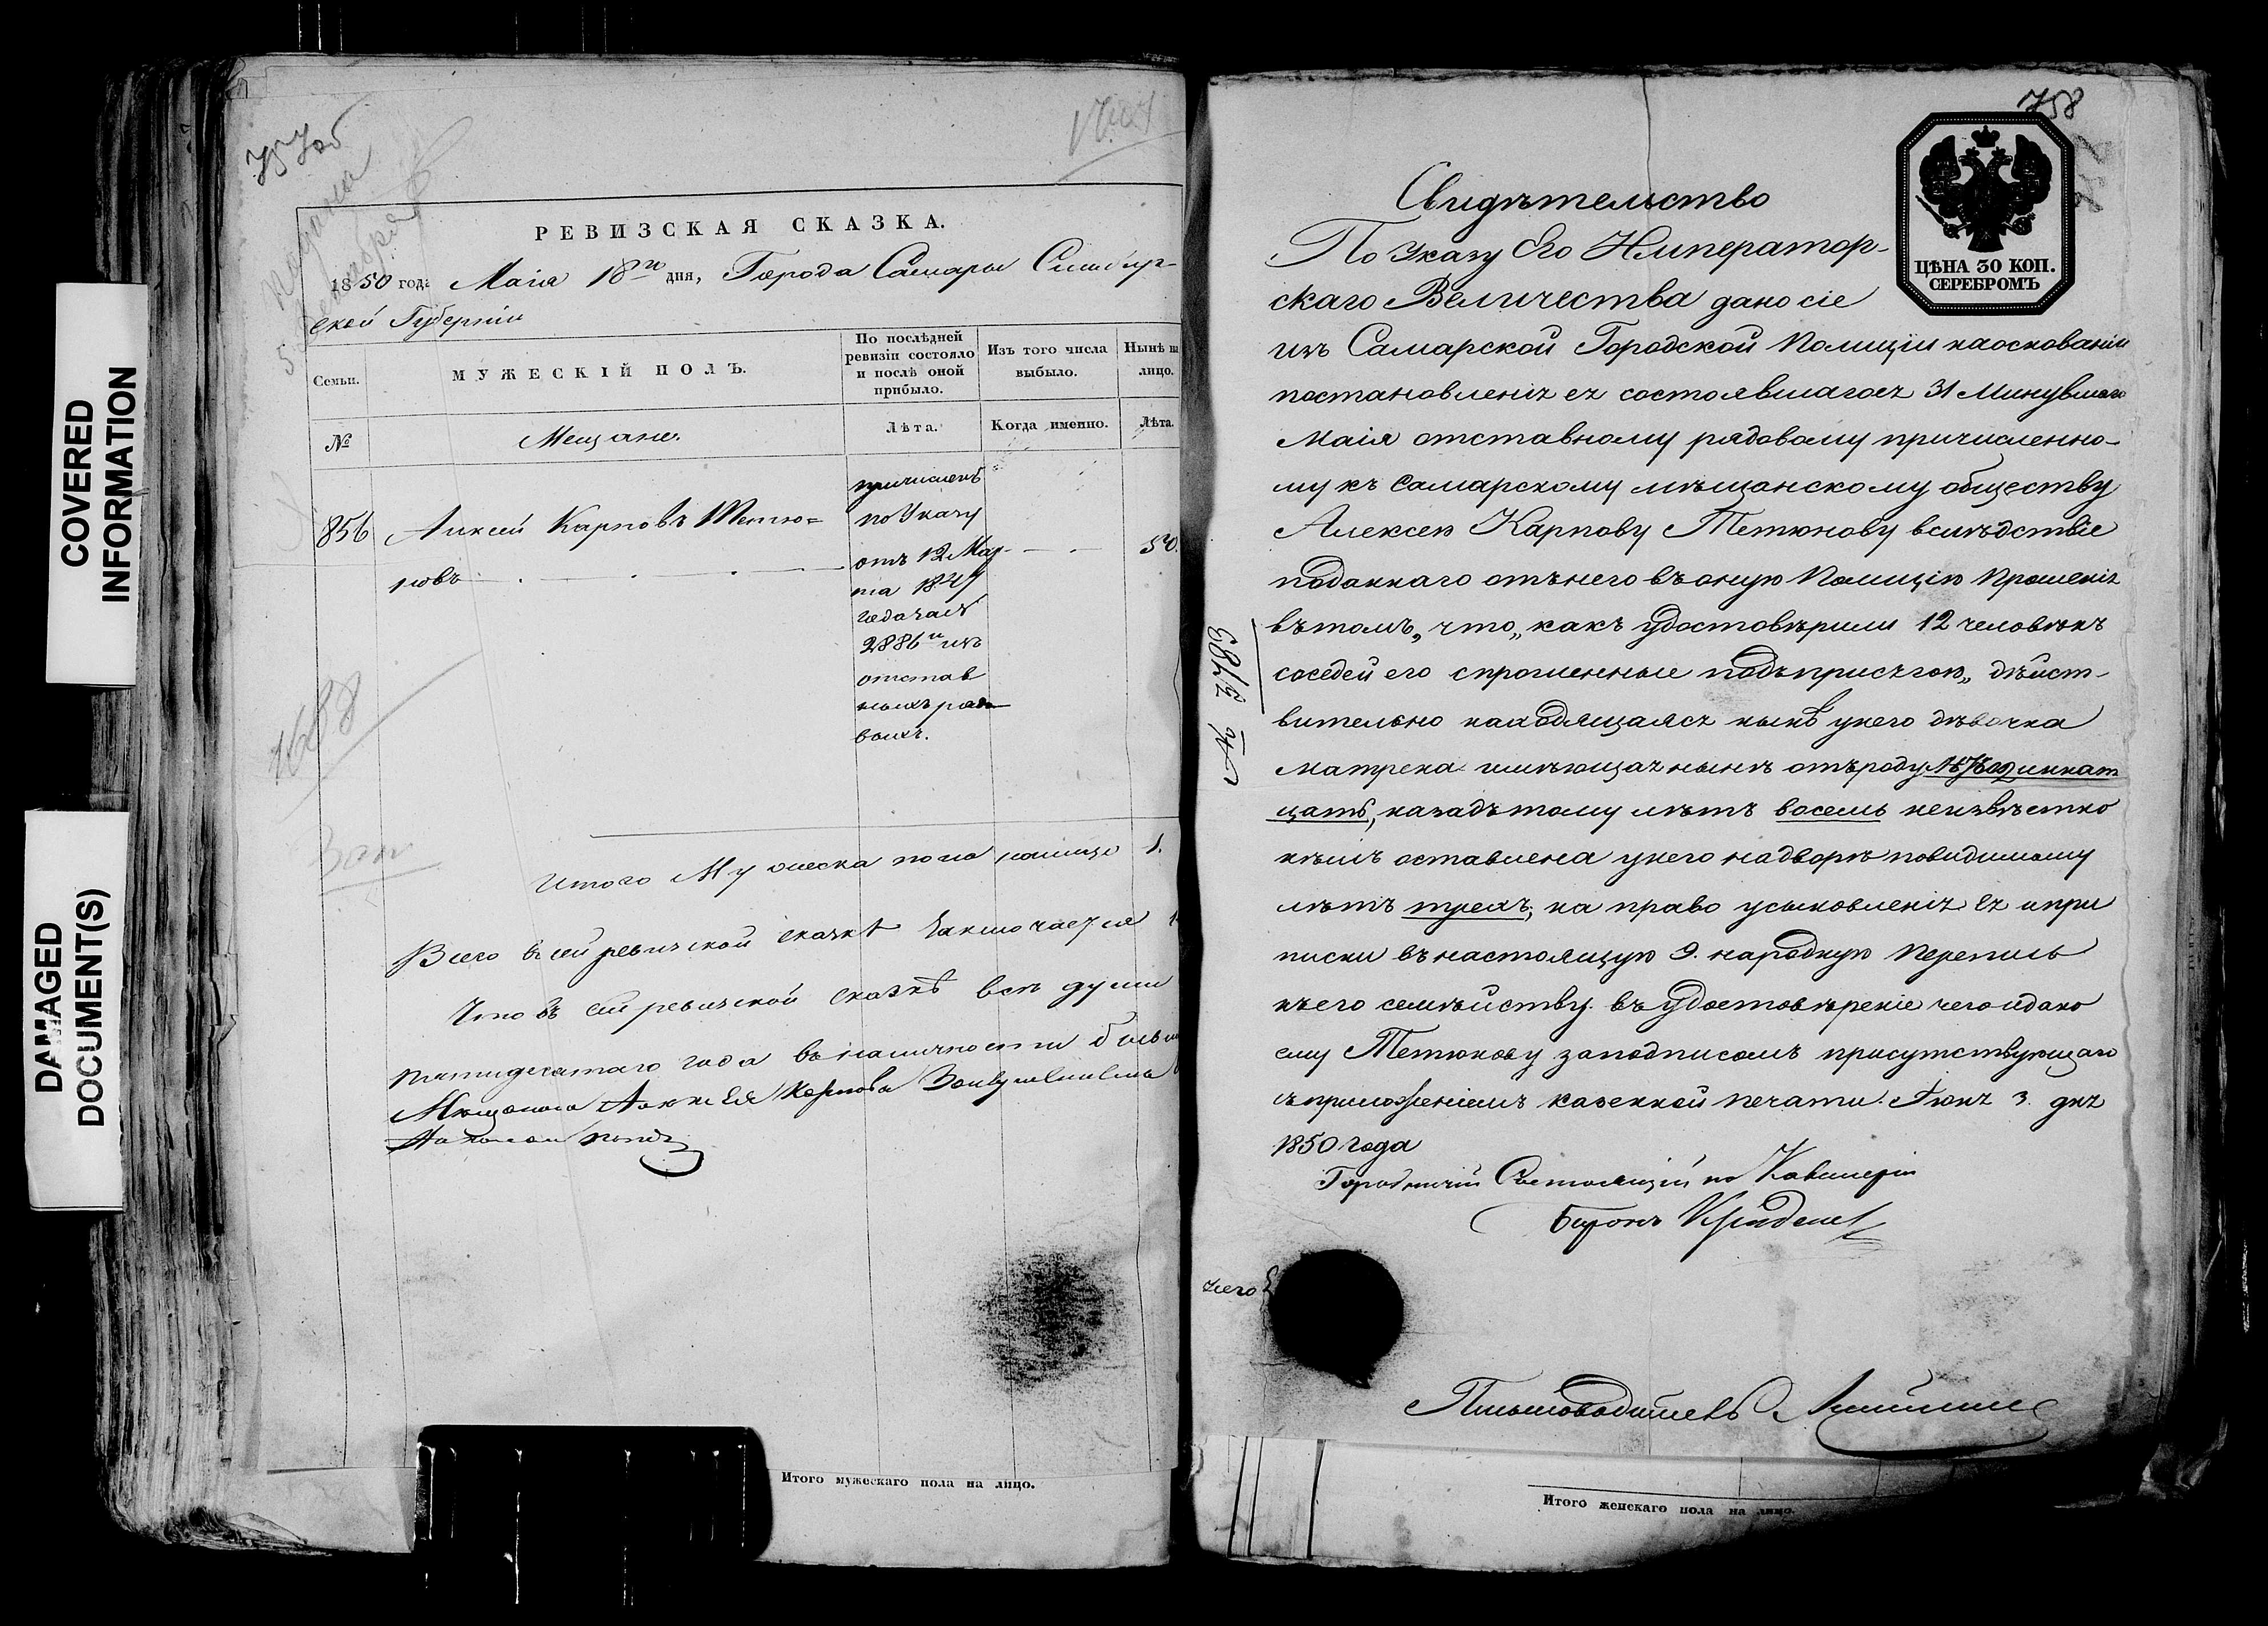 COVERED
INFORMATION
DAMAGED
DOCUMENT(S)
757об
РЕВИЗСКАЯ СКАЗКА.
1850 года Маія 18го дня, Города Самары Симбир-
ской Губерніи
Семьи.
МУЖЕСКІЙ ПОЛЪ.
По послѣдней
ревизіи состояло
и послѣ оной
прибыло.
Изъ того числа
выбыло.
Нынѣ на
лицо.
№
Мещане.
Лѣта.
Когда именно.
Лѣта.
856
Алксей Карповъ Тетю-
новъ
причисленъ
по Указу
отъ 12 Мар-
та 1849
года за №
2886м изъ
отстав
ныхъ рядо
выхъ.
50.
1688
Зап
Итого Мужеска пола налицо 1.
Всего въ сей ревизской сказкѣ Заключается 1
Что въ сей ревизской сказкѣ всѣ души
пятидесятаго года въ наличности
Мѣщанина Алексея Карпова
758
ЦѢНА 30 КОП.
СЕРЕБРОМЪ
Свидѣтельство
По Указу Его Император-
скаго Величества дано сіе
изъ Самарской Городской Полиціи на основаніи
постановленія ея состоявшагося 31 Минувшаго
Маія отставному рядовому причисленно-
му къ Самарскому мѣщанскому обществу
Алексею Карпову Тетюнову вслѣдствіе
поданнаго отъ него въ оную Полицію Прошенія
въ томъ, что „какъ удостовѣрили 12 человѣкъ
соседей его спрошенные подъ присягою„ дѣйст-
вительно находящаяся нынѣ у него дѣвочка
Матрена имѣющая нынѣ отъ роду одиннат
цать, назадъ тому лѣтъ восемь неизвѣстно
кѣмъ оставлена у него на дворѣ повидимому
лѣтъ трехъ, на право усыновленія ея и при
писки въ настоящую 9. народную Перепись
къ его семѣйству. въ удостовѣреніе чего и дано
ему Тетюнову за подписомъ присутствующаго
съ приложеніемъ казенной печати. Іюня 3 дня
1850 года
Городничій Состоящій по Кавалеріи
Баронъ
Письмоводитель
Итого мужескаго пола на лицо.
Итого женскаго пола на лицо.